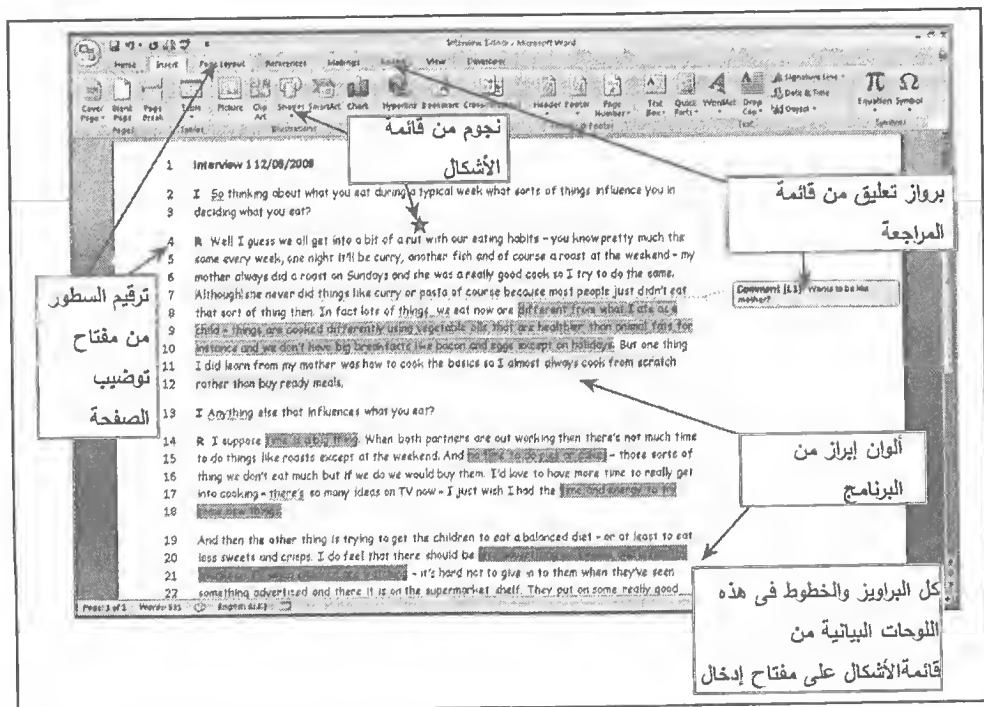 Interview 1 Edited - Microsoft Word
Home Insert Page Layout References Mailings Review View Developer
Cover Page Blank Page Page Break Table Picture Clip Art Shapes SmartArt Chart Hyperlink Bookmark Header Footer Page Number Text Box Quick Parts WordArt Drop Cap Signature Line Date & Time Object Equation Symbol
Pages Tables Illustrations Text Symbols
نجوم من قائمة
الأشكال
برواز تعليق من قائمة
المراجعة
ترقيم السطور
من مفتاح
توضيب
الصفحة
1 Interview 1 12/08/2008
2 I So thinking about what you eat during a typical week what sorts of things influence you in
3 deciding what you eat?
4 R Well I guess we all get into a bit of a rut with our eating habits – you know pretty much the
5 same every week, one night it'll be curry, another fish and of course a roast at the weekend – my
6 mother always did a roast on Sundays and she was a really good cook so I try to do the same.
7 Although she never did things like curry or pasta of course because most people just didn't eat
8 that sort of thing then. In fact lots of things we eat now are different from what I ate as a
9 child – things are cooked differently using vegetable oils that are healthier than animal fats for
10 instance and we don't have big breakfasts like bacon and eggs except on holidays. But one thing
11 I did learn from my mother was how to cook the basics so I almost always cook from scratch
12 rather than buy ready meals.
Comment [L1]: Wants to be like mother?
13 I Anything else that influences what you eat?
14 R I suppose time is a big thing. When both partners are out working then there's not much time
15 to do things like roasts except at the weekend. And no time to do – those sorts of
16 thing we don't eat much but if we do we would buy them. I'd love to have more time to really get
17 into cooking – there's so many ideas on TV now – I just wish I had the time and energy to try
18 some new things.
19 And then the other thing is trying to get the children to eat a balanced diet – or at least to eat
20 less sweets and crisps. I do feel that there should be
21 – it's hard not to give in to them when they've seen
22 something advertised and there it is on the supermarket shelf. They put on some really good
ألوان إبراز من
البرنامج
كل البراويز والخطوط فى هذه
اللوحات البيانية من
قائمة الأشكال على مفتاح إدخال
Page: 1 of 2 Words: 531 English (U.K.)